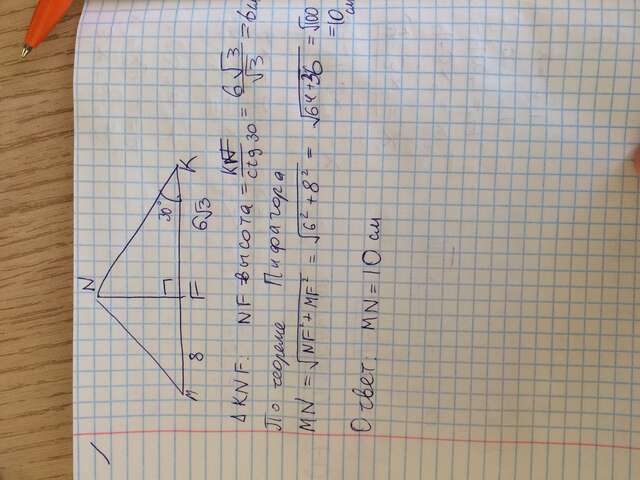 N
30°
M 8 F 6√3 K
Δ KNF: NF высота = KF/ctg 30 = 6√3/√3 = 6см
По теореме Пифагора
MN = √NF² + MF² = √6² + 8² = √64+36 = √100
= 10 см
Ответ: MN = 10 см